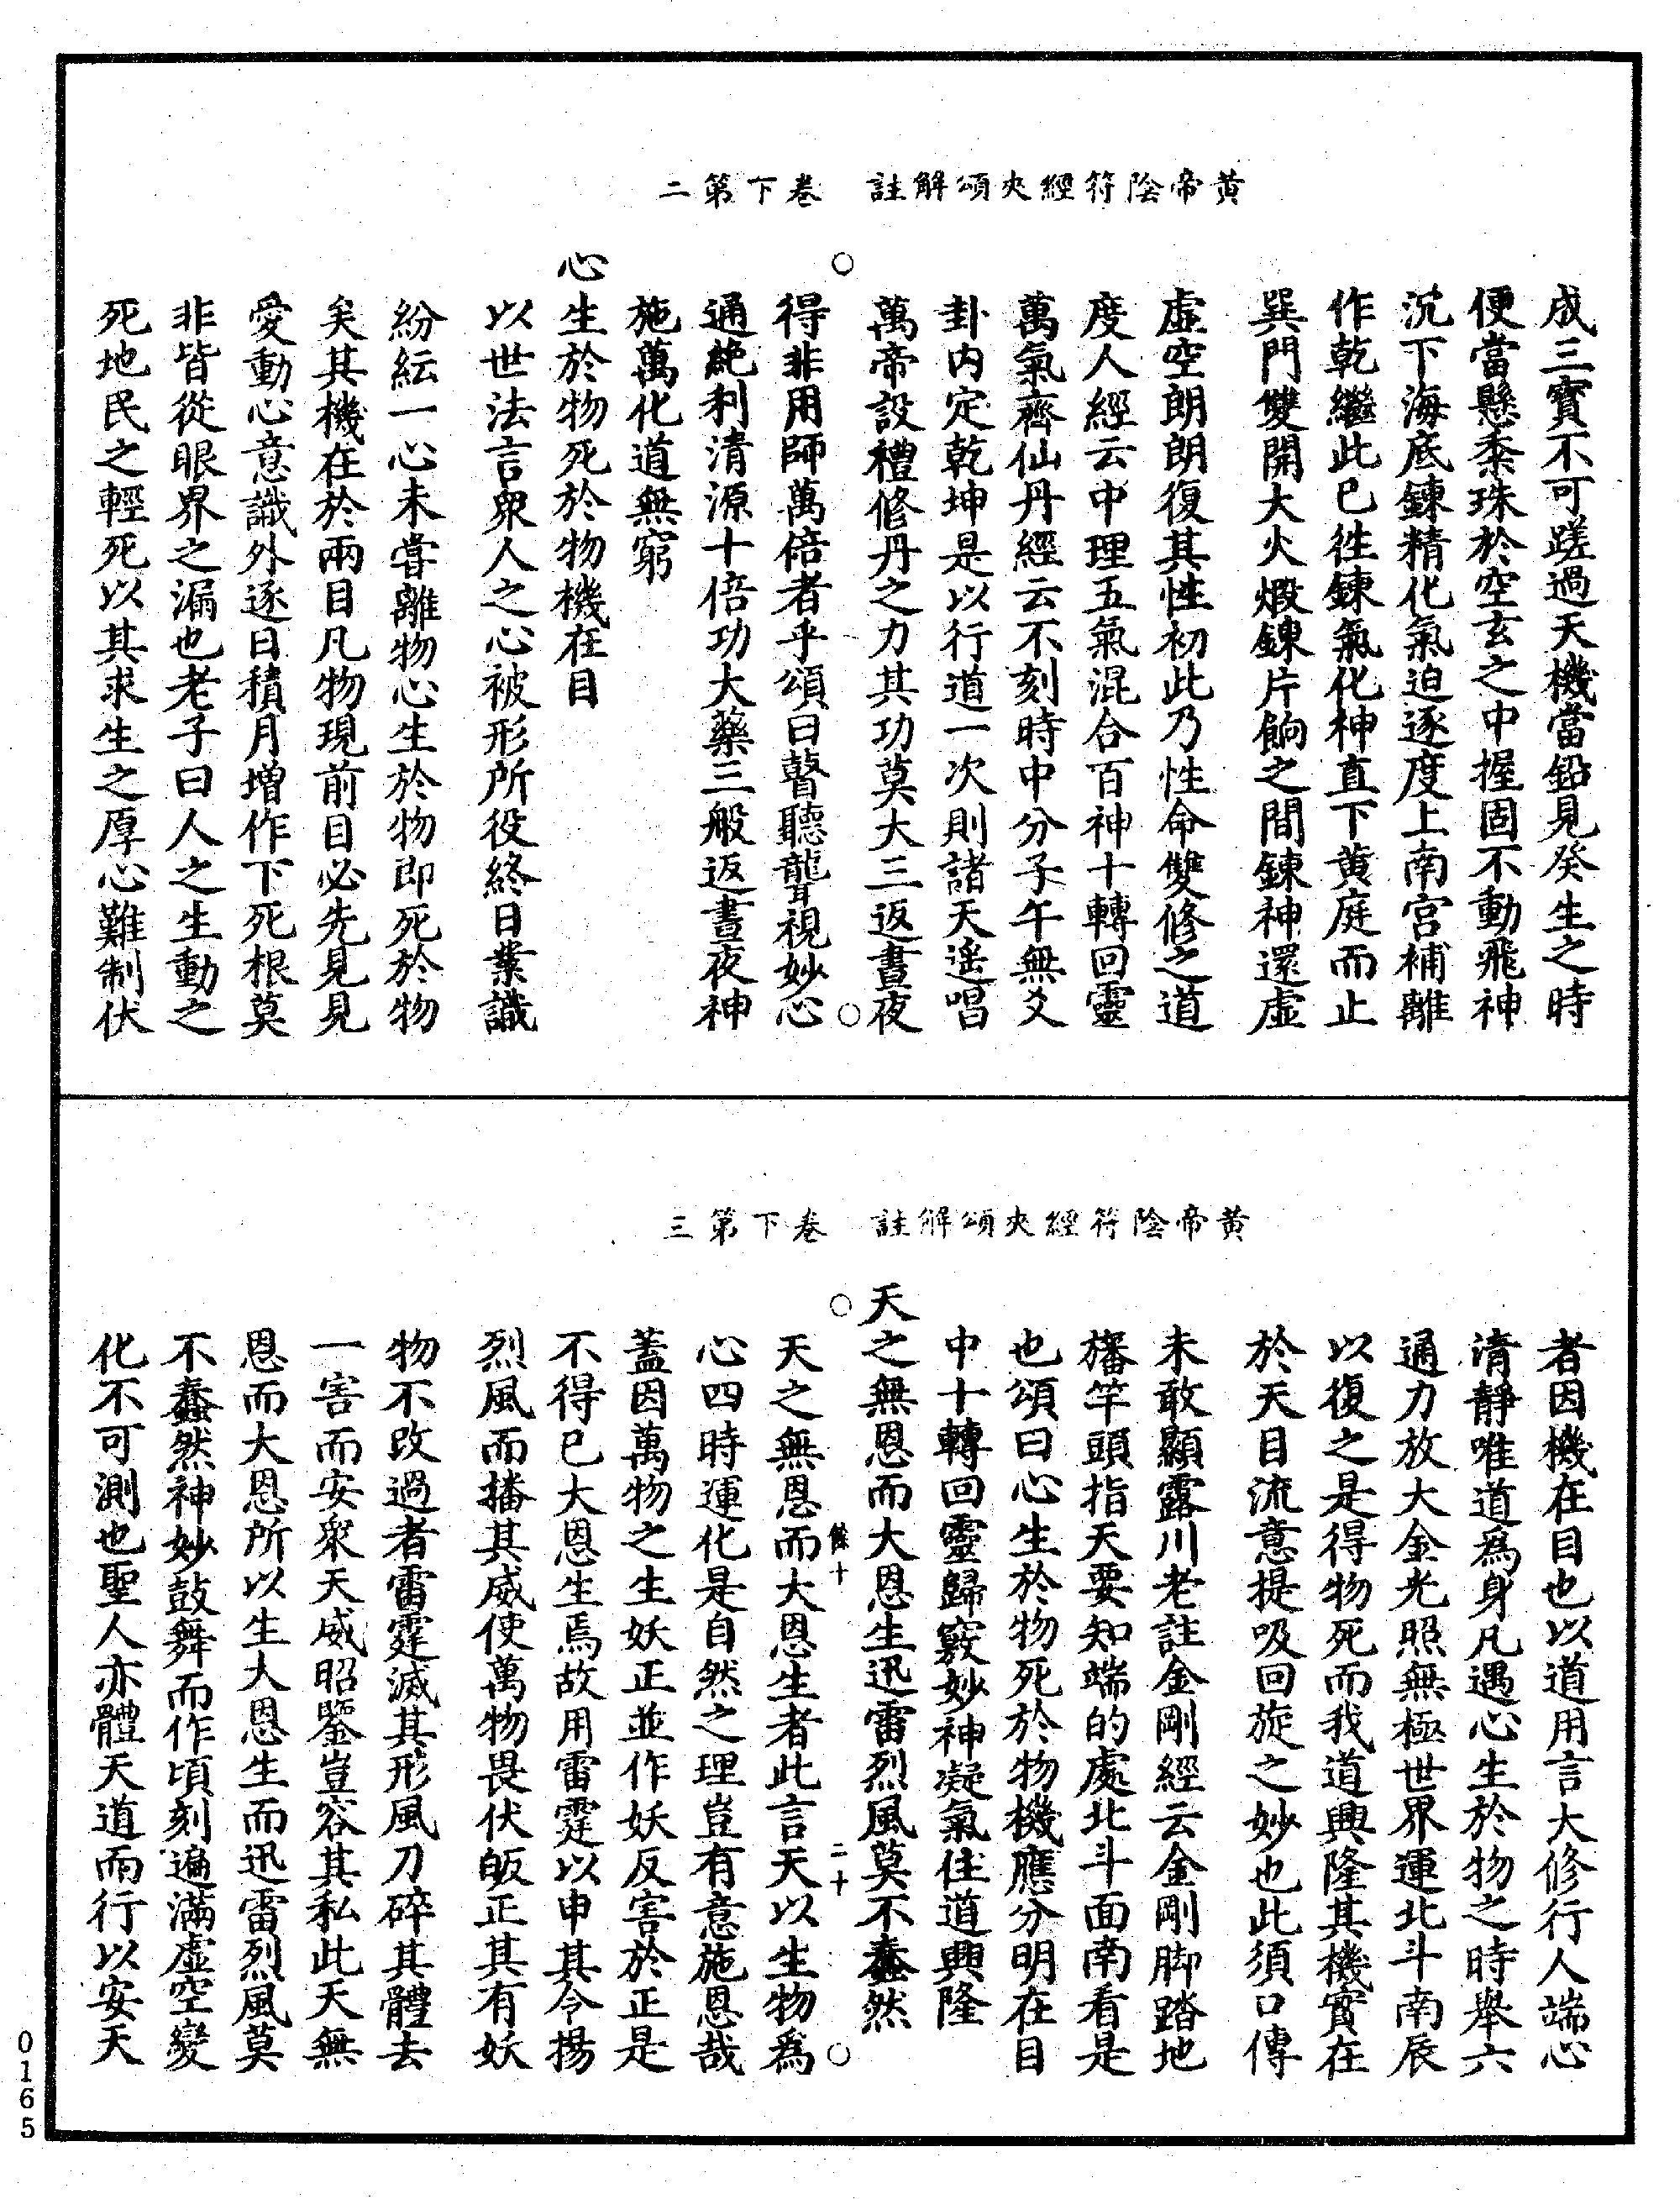 黃帝陰符經夾頌解註　卷下第二
成三寶不可蹉過天機當鉛見癸生之時
便當懸黍珠於空玄之中握固不動飛神
沉下海底鍊精化氣迫逐度上南宮補離
作乾繼此巳徃鍊氣化神直下黃庭而止
巽門雙開大火煅鍊片餉之間鍊神還虛
虛空朗朗復其性初此乃性命雙修之道
度人經云中理五氣混合百神十轉回靈
萬氣齊仙丹經云不刻時中分子午無爻
卦內定乾坤是以行道一次則諸天遙唱
萬帝設禮修丹之力其功莫大三返晝夜
○　○
得非用師萬倍者乎頌曰瞽聽聾視妙心
通絶利清源十倍功大藥三般返晝夜神
施萬化道無窮
心生於物死於物機在目
以世法言衆人之心被形所役終日業識
紛紜一心未甞離物心生於物即死於物
矣其機在於兩目凡物現前目必先見見
愛動心意識外逐日積月增作下死根莫
非皆從眼界之漏也老子曰人之生動之
死地民之輕死以其求生之厚心難制伏
黃帝陰符經夾頌解註　卷下第三
者因機在目也以道用言大修行人端心
清靜唯道爲身凡遇心生於物之時舉六
通力放大金光照無極世界運北斗南辰
以復之是得物死而我道興隆其機實在
於天目流意提吸回旋之妙也此須口傳
未敢顯露川老註金剛經云金剛脚踏地
旛竿頭指天要知端的處北斗面南看是
也頌曰心生於物死於物機應分明在目
中十轉回靈歸竅妙神凝氣住道興隆
天之無恩而大恩生迅雷烈風莫不蠢然
○　餘十　二十　○
天之無恩而大恩生者此言天以生物爲
心四時運化是自然之理豈有意施恩哉
蓋因萬物之生妖正並作妖反害於正是
不得巳大恩生焉故用雷霆以申其令揚
烈風而播其威使萬物畏伏皈正其有妖
物不改過者雷霆滅其形風刀碎其體去
一害而安衆天威昭鑒豈容其私此天無
恩而大恩所以生大恩生而迅雷烈風莫
不蠢然神妙鼓舞而作頃刻遍滿虛空變
化不可測也聖人亦體天道而行以安天
0165